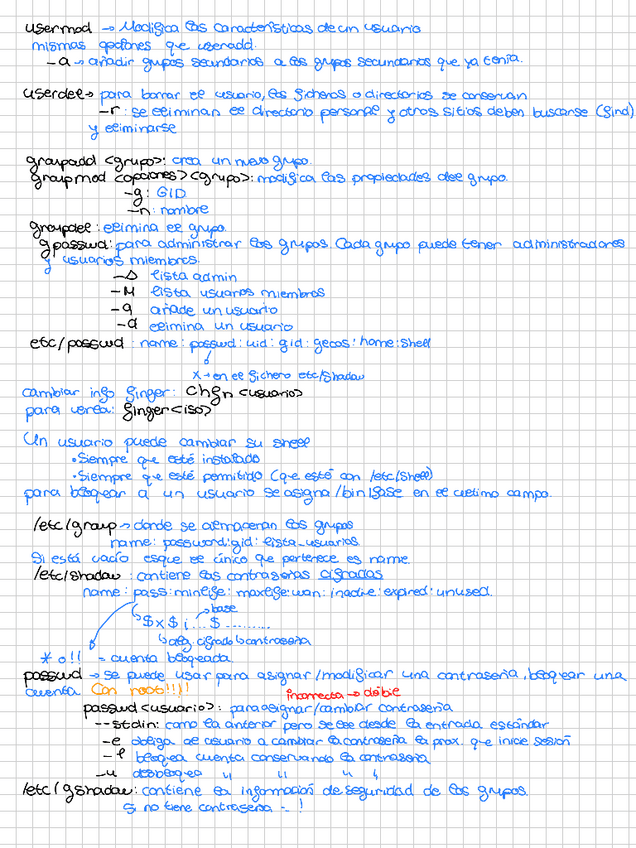 usermod → Modifica las características de un usuario
mismas opciones que useradd.
-a → añadir grupos secundarios a los grupos secundarios que ya tenía.
userdel → para borrar el usuario, los ficheros o directorios se conservan
-r: se eliminan el directorio personal y otros sitios deben buscarse (find)
y eliminarse
groupadd <grupo>: crea un nuevo grupo.
groupmod <opciones> <grupo>: modifica las propiedades del grupo.
-g: GID
-n: nombre
groupdel: elimina el grupo.
gpasswd: para administrar los grupos. Cada grupo puede tener administradores
y usuarios miembros.
-A lista admin
-M lista usuarios miembros
-a añade un usuario
-d elimina un usuario
etc/passwd: name: passwd: uid: gid: gecos: home: shell
x → en el fichero etc/shadow
cambiar info finger: chfn <usuario>
para verla: finger <iso>
Un usuario puede cambiar su shell
• Siempre que esté instalado
• Siempre que esté permitido (que esté con /etc/shell)
para bloquear a un usuario se asigna /bin/false en el último campo.
/etc/group → donde se almacenan los grupos
name: password: gid: lista_usuarios
Si está vacío esque el único que pertenece es name.
/etc/shadow: contiene las contraseñas cifradas
name: pass: minlife: maxlife: wan: inactive: expired: unused.
base
$x$i...$.........
alg. cifrado contraseña
* o !! = cuenta bloqueada
passwd → se puede usar para asignar/modificar una contraseña, bloquear una
cuenta Con root!!!!
incorrecta → débil
passwd <usuario>: para asignar/cambiar contraseña
--stdin: como la anterior pero se lee desde la entrada estándar
-e obliga al usuario a cambiar la contraseña la prox. que inicie sesión
-l bloquea cuenta conservando la contraseña
-u desbloquea " " " "
/etc/gshadow: contiene la información de seguridad de los grupos.
Si no tiene contraseña - !